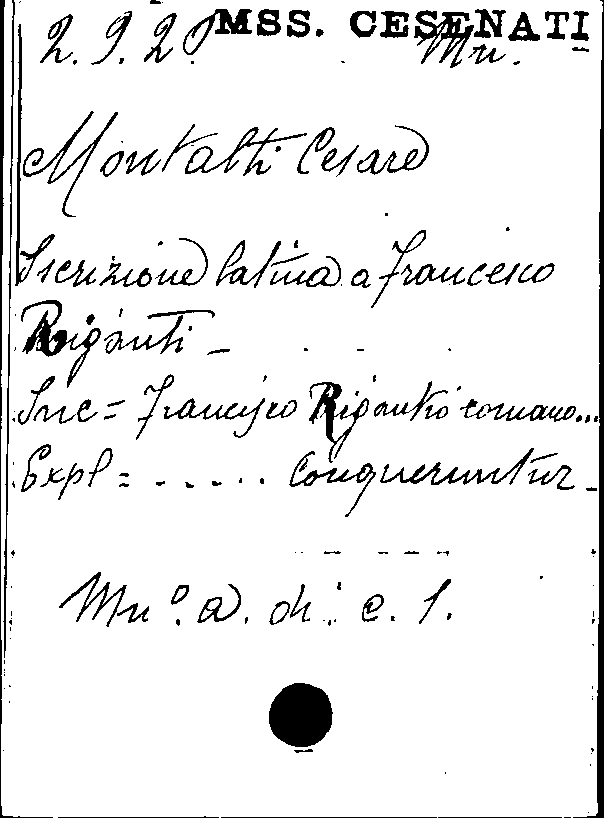 MSS. CESENATI
2. 9. 2. Mn.
Montalti Cesare
Iscrizione latina a Francesco
Riganti -
Inc = Francisco Rigantio comano...
Expl = ..... Conqueruntur -
Mnº. a. di: c. 1.